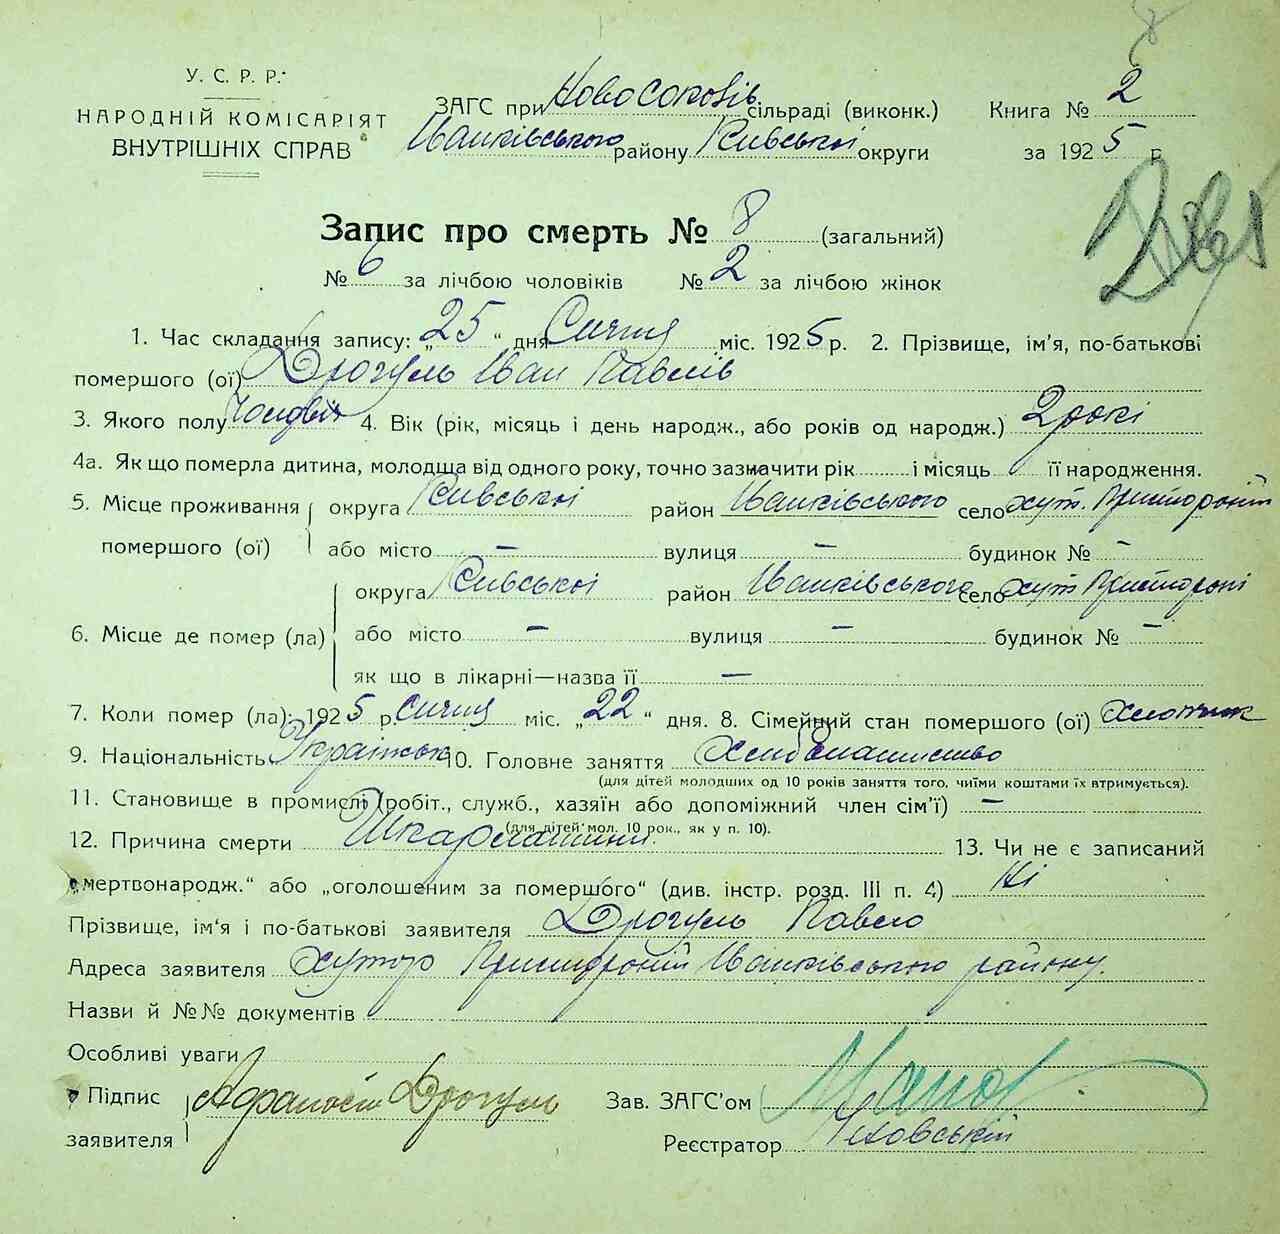 8
У. С. Р. Р.
НАРОДНІЙ КОМІСАРІЯТ
ВНУТРІШНІХ СПРАВ
ЗАГС при Новосоковів сільраді (виконк.) Книга № 2
Іванківського району Київської округи за 1925 р.
Запис про смерть № 8 (загальний)
№ 6 за лічбою чоловіків № 2 за лічбою жінок
1. Час складання запису: „25“ дня Січня міс. 1925 р. 2. Прізвище, ім'я, по-батькові
помершого (ої) Дрогуль Іван Павлів
3. Якого полу Чоловік 4. Вік (рік, місяць і день народж., або років од народж.) 2 рокі
4а. Як що померла дитина, молодща від одного року, точно зазначити рік і місяць її народження.
5. Місце проживання округа Київської район Іванківського село хут. Пристороній
помершого (ої) або місто — вулиця — будинок № —
округа Київської район Іванківського село хут Пристороні
6. Місце де помер (ла) або місто — вулиця — будинок № —
як що в лікарні—назва її —
7. Коли помер (ла): 1925 р. Січня міс. „22“ дня. 8. Сімейний стан помершого (ої) хлопчик
9. Національність Українськ 10. Головне заняття Хліборобство
(для дітей молодших од 10 років заняття того, чиїми коштами їх втримується).
11. Становище в промислі (робіт., служб., хазяїн або допоміжний член сім'ї) —
(для дітей мол. 10 рок., як у п. 10).
12. Причина смерти Шкарлатини. 13. Чи не є записаний
„мертвонародж.“ або „оголошеним за помершого“ (див. інстр. розд. III п. 4) Ні
Прізвище, ім'я і по-батькові заявителя Дрогуль Павло
Адреса заявителя хутор Пристороній Іванківського району.
Назви й №№ документів
Особливі уваги
Підпис Дрогуль Зав. ЗАГС'ом
заявителя Реєстратор